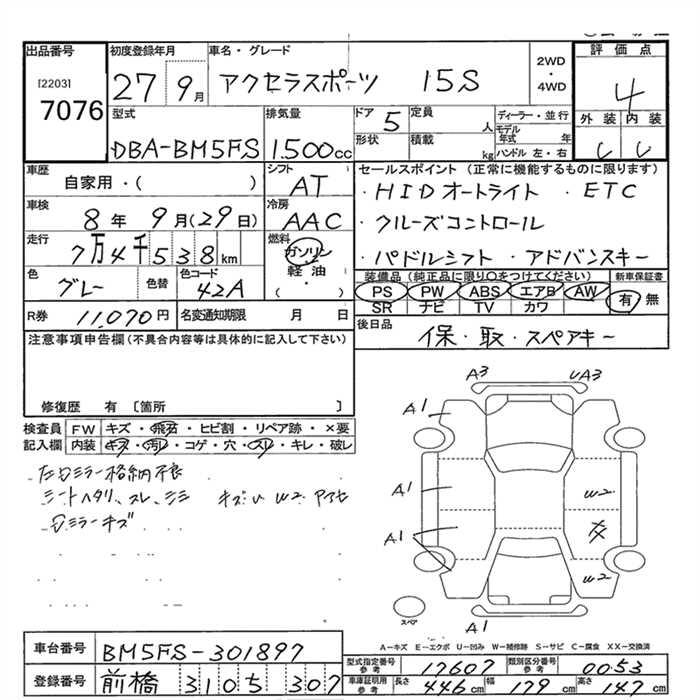 出品番号 初度登録年月 車名・グレード 2WD ・ 4WD 評価点
[2203] 7076 27 9月 アクセラスポーツ 15S 4
型式 排気量 ドア 5 定員 人 ディーラー・並行 外装 内装
DBA-BM5FS 1.500cc 形状 積載 kg モデル年式 年 ハンドル 左・右 C C
車歴 シフト セールスポイント (正常に機能するものに限ります)
自家用・( ) AT ・HIDオートライト ・ETC
車検 8年 9月(29日) 冷房 AAC ・クルーズコントロール
走行 7万4千538km 燃料 ガソリン ・パドルシフト ・アドバンスキー
色 グレー 色替 色コード 42A 軽油 ・ ( ) 装備品(純正品に限り○をつけてください) 新車保証書
PS PW ABS エアB AW 有・無
SR ナビ TV カワ
R券 11,070円 名変通知期限 月 日 後日品 保・取・スペアキー
注意事項申告欄(不具合内容等は具体的に記入して下さい)
修復歴 有 〔箇所 〕
検査員 FW キズ・飛石・ヒビ割・リペア跡・×要
記入欄 内装 キズ・汚れ・コゲ・穴・スレ・キレ・破レ
左Dミラー格納不良
シートヘタリ、スレ、シミ キズU W2 アアセ
Dミラーキズ
A3 UA3
A1
A1 W2
A1 X
W2
スペア A1
A-キズ E-エクボ U-凹み W-補修跡 S-サビ C-腐食 XX-交換済
車台番号 BM5FS-301897 型式指定番号 参考 17607 類別区分番号 参考 0053
登録番号 前橋 310 5 307 車両証明書 参考 長さ 446cm 幅 179cm 高さ 147cm